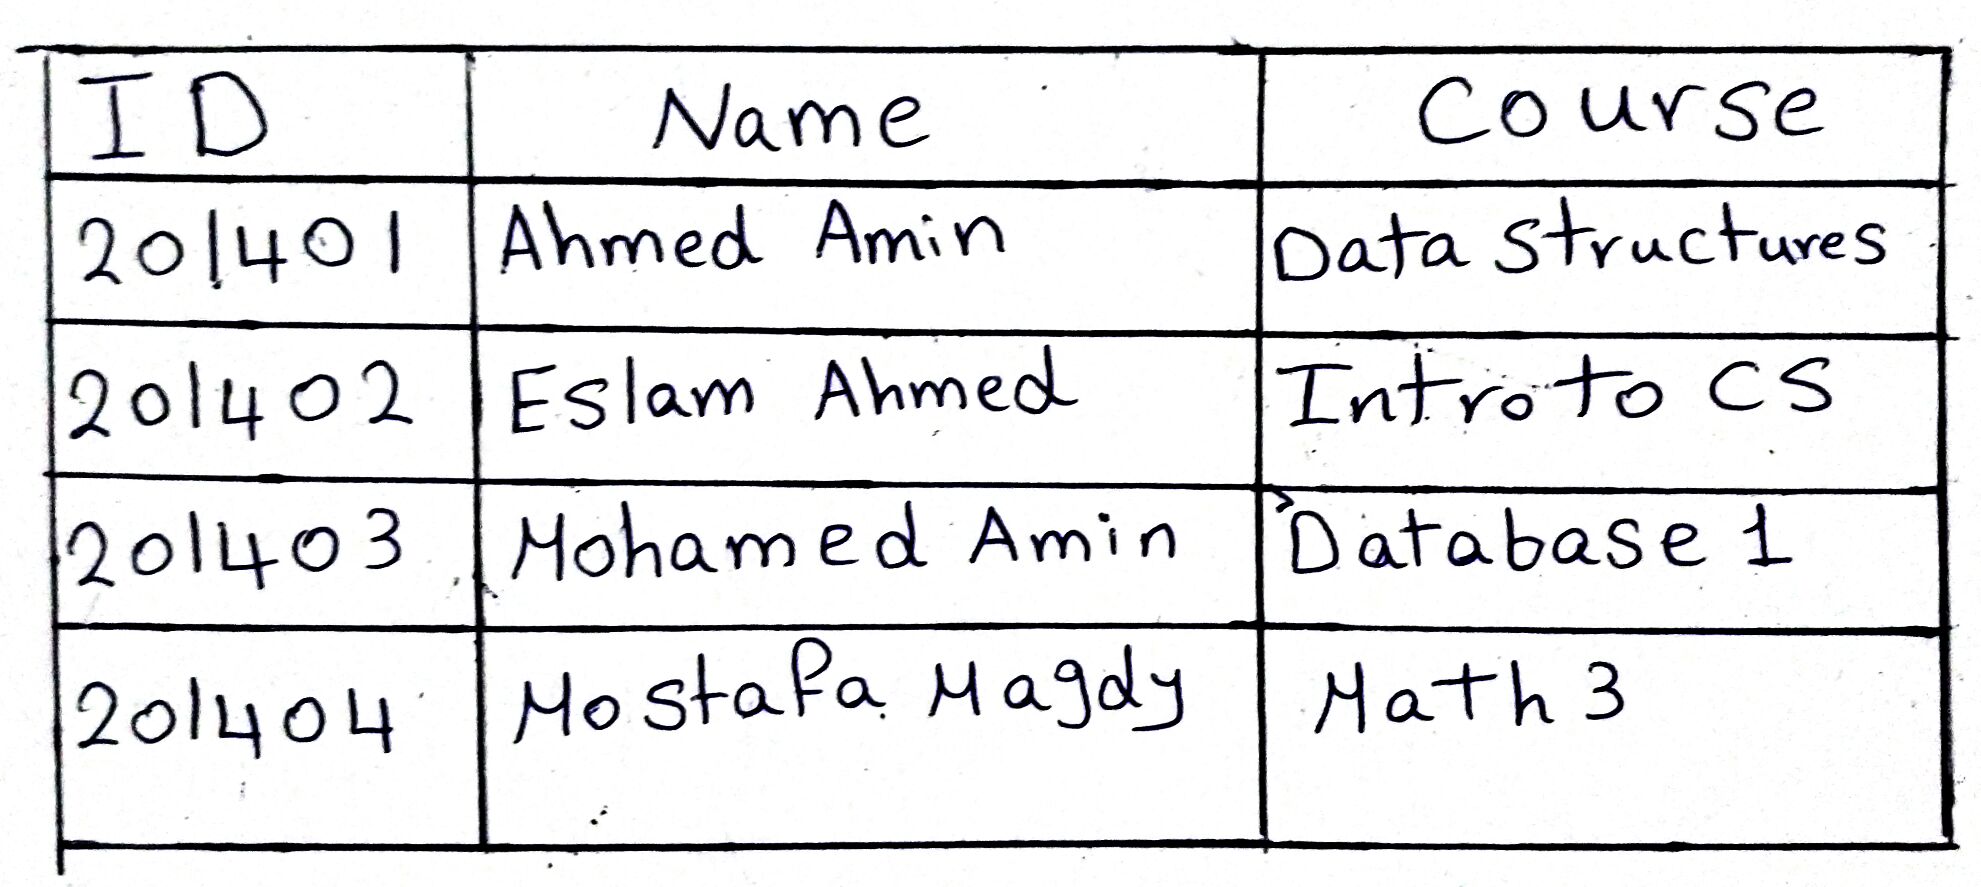 ID Name Course
201401 Ahmed Amin Data Structures
201402 Eslam Ahmed Intro to CS
201403 Mohamed Amin Database 1
201404 Mostafa Magdy Math 3